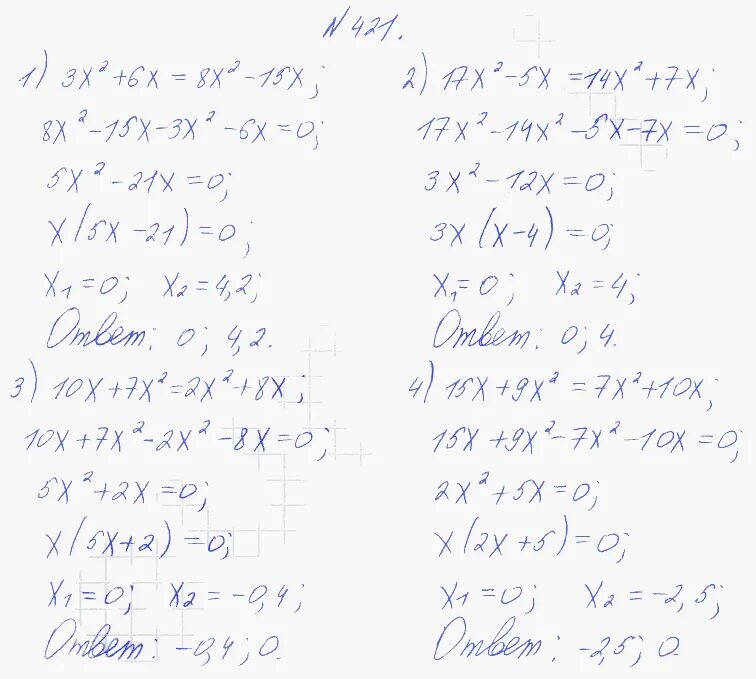 № 421.
1) 3x² + 6x = 8x² - 15x;
8x² - 15x - 3x² - 6x = 0;
5x² - 21x = 0;
x(5x - 21) = 0;
x₁ = 0; x₂ = 4,2;
Ответ: 0; 4,2.
2) 17x² - 5x = 14x² + 7x;
17x² - 14x² - 5x - 7x = 0;
3x² - 12x = 0;
3x(x - 4) = 0;
x₁ = 0; x₂ = 4;
Ответ: 0; 4.
3) 10x + 7x² = 2x² + 8x;
10x + 7x² - 2x² - 8x = 0;
5x² + 2x = 0;
x(5x + 2) = 0;
x₁ = 0; x₂ = -0,4;
Ответ: -0,4; 0.
4) 15x + 9x² = 7x² + 10x;
15x + 9x² - 7x² - 10x = 0;
2x² + 5x = 0;
x(2x + 5) = 0;
x₁ = 0; x₂ = -2,5;
Ответ: -2,5; 0.